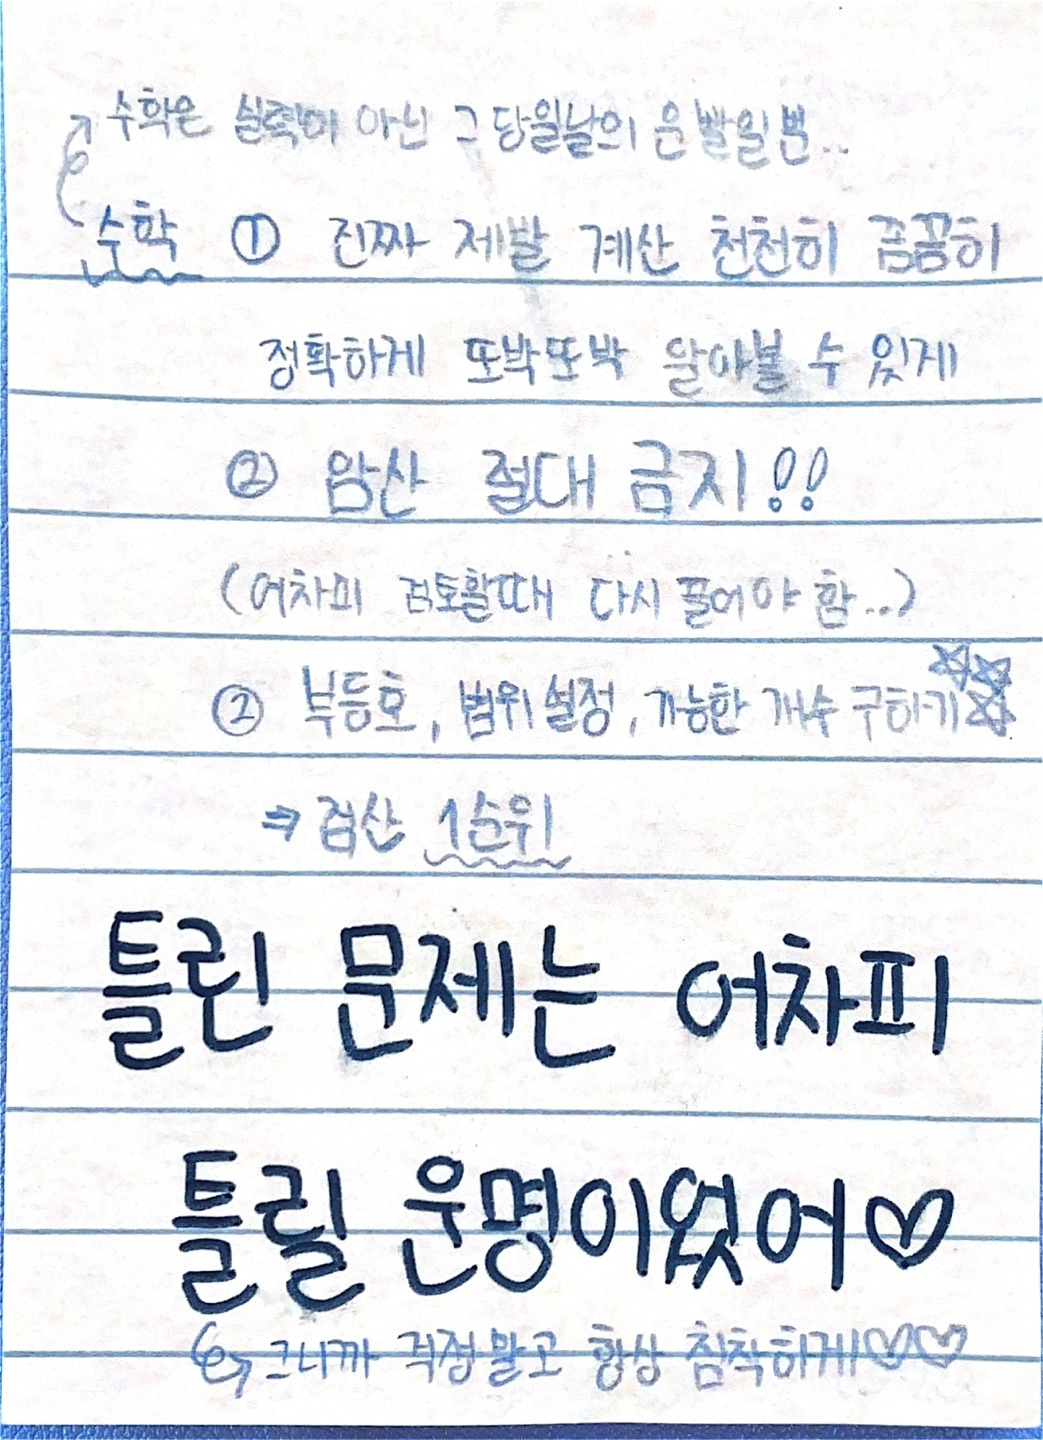 수학은 실력이 아닌 그 당일날의 운빨일 뿐..
수학 ① 진짜 제발 계산 천천히 꼼꼼히
정확하게 또박또박 알아볼 수 있게
② 암산 절대 금지!!
(어차피 검토할때 다시 풀어야 함..)
② 부등호, 범위 설정, 가능한 개수 구하기☆☆☆
⇒ 검산 1순위
틀린 문제는 어차피
틀릴 운명이었어♡
↳ 그니까 걱정말고 항상 침착하게♡♡